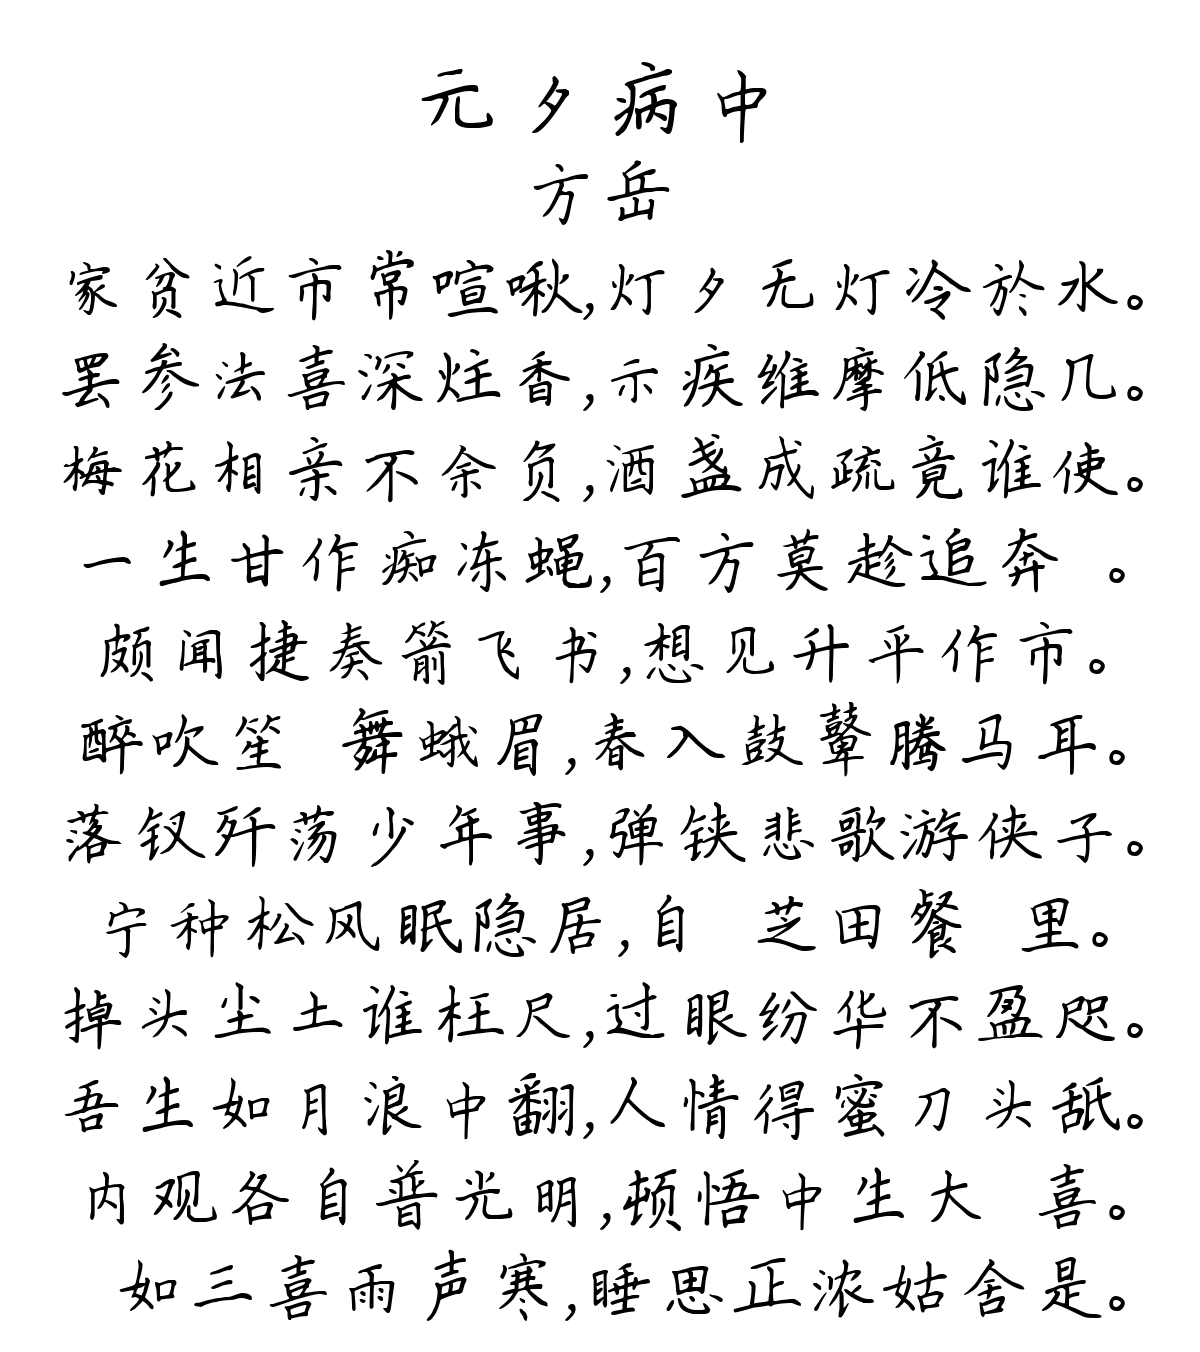 元夕病中
方岳
家贫近市常喧啾,灯夕无灯冷於水。
罢参法喜深炷香,示疾维摩低隐几。
梅花相亲不余负,酒盏成疏竟谁使。
一生甘作痴冻蝇,百方莫趁追奔 。
颇闻捷奏箭飞书,想见升平作市。
醉吹笙 舞蛾眉,春入鼓鼙腾马耳。
落钗歼荡少年事,弹铗悲歌游侠子。
宁种松风眠隐居,自 芝田餐 里。
掉头尘土谁枉尺,过眼纷华不盈咫。
吾生如月浪中翻,人情得蜜刀头舐。
内观各自普光明,顿悟中生大 喜。
如三喜雨声寒,睡思正浓姑舍是。